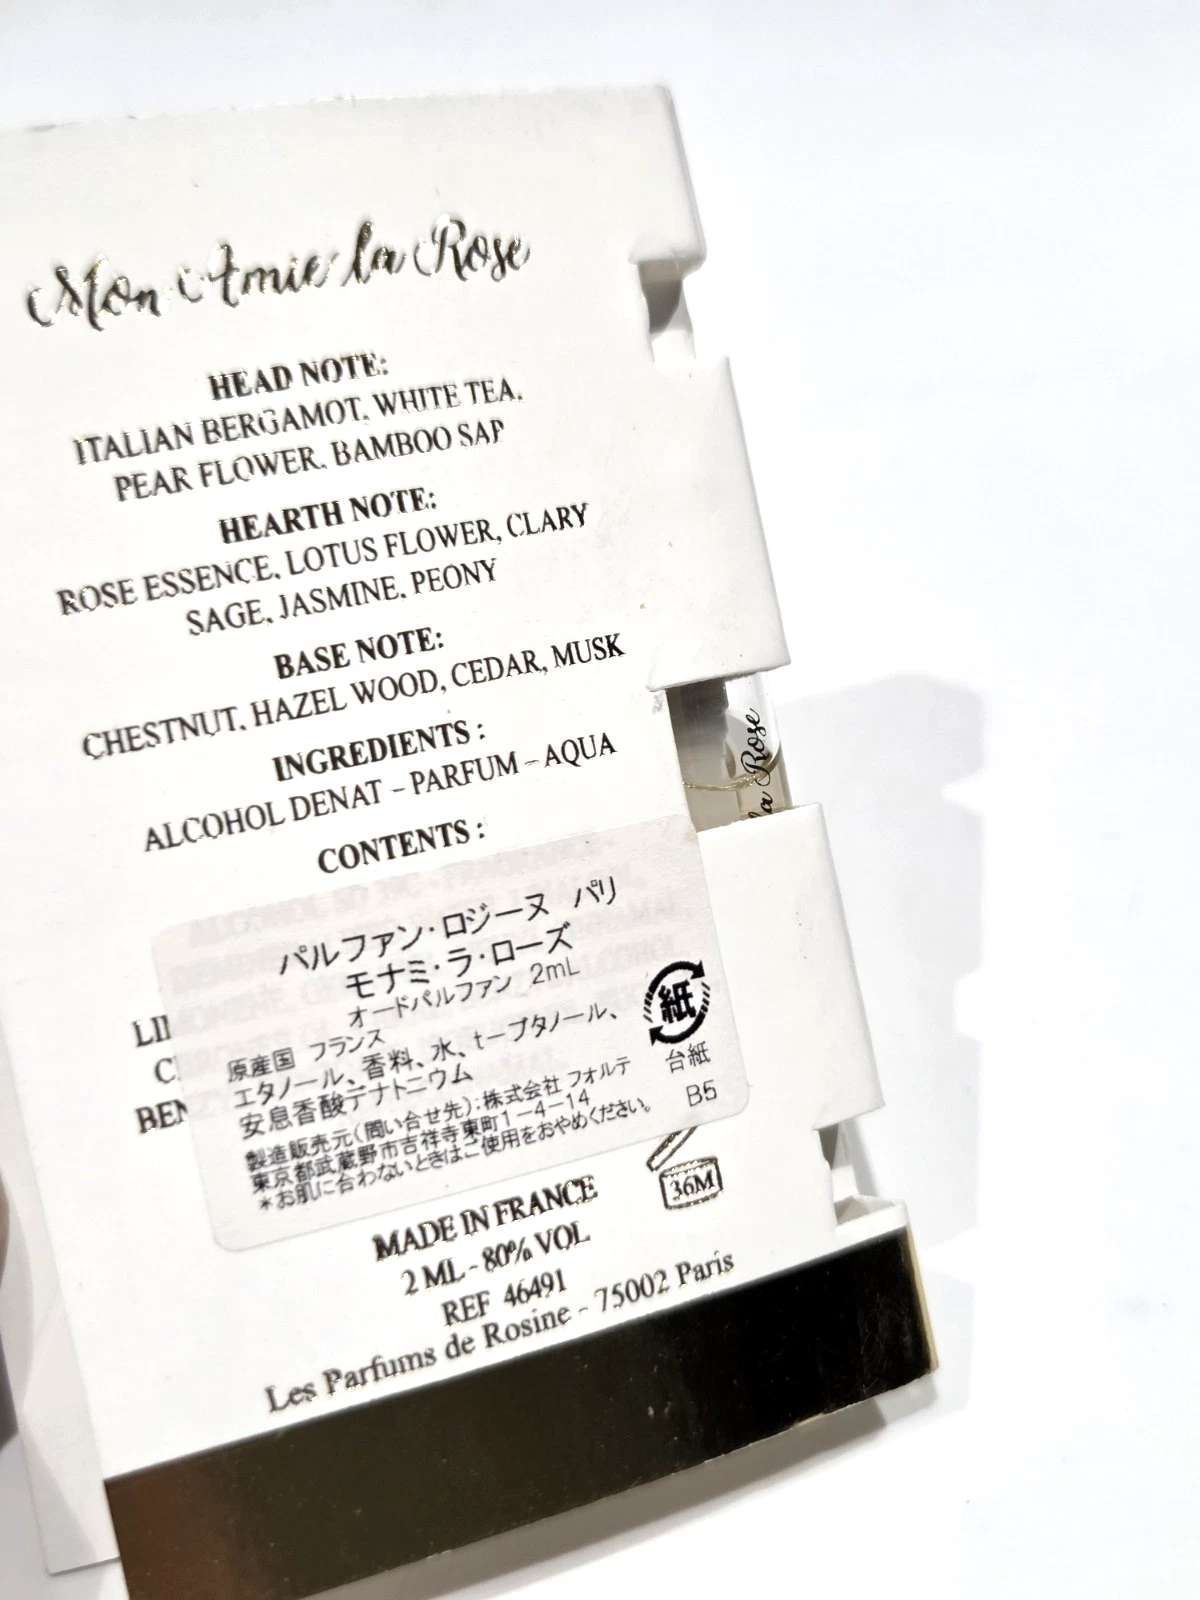 Mon Amie la Rose
HEAD NOTE:
ITALIAN BERGAMOT, WHITE TEA,
PEAR FLOWER, BAMBOO SAP
HEARTH NOTE:
ROSE ESSENCE, LOTUS FLOWER, CLARY
SAGE, JASMINE, PEONY
BASE NOTE:
CHESTNUT, HAZEL WOOD, CEDAR, MUSK
INGREDIENTS :
ALCOHOL DENAT – PARFUM – AQUA
CONTENTS :
la Rose
パルファン・ロジーヌ パリ
モナミ・ラ・ローズ
オードパルファン 2mL
原産国 フランス
エタノール、香料、水、t-ブタノール、
安息香酸デナトニウム
製造販売元(問い合せ先):株式会社 フォルテ
東京都武蔵野市吉祥寺東町1-4-14
*お肌に合わないときはご使用をおやめください。
紙
台紙
B5
36M
MADE IN FRANCE
2 ML - 80% VOL
REF 46491
Les Parfums de Rosine - 75002 Paris